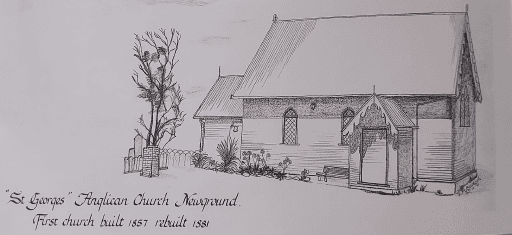 "St Georges" Anglican Church Newground.
First church built 1857 rebuilt 1881